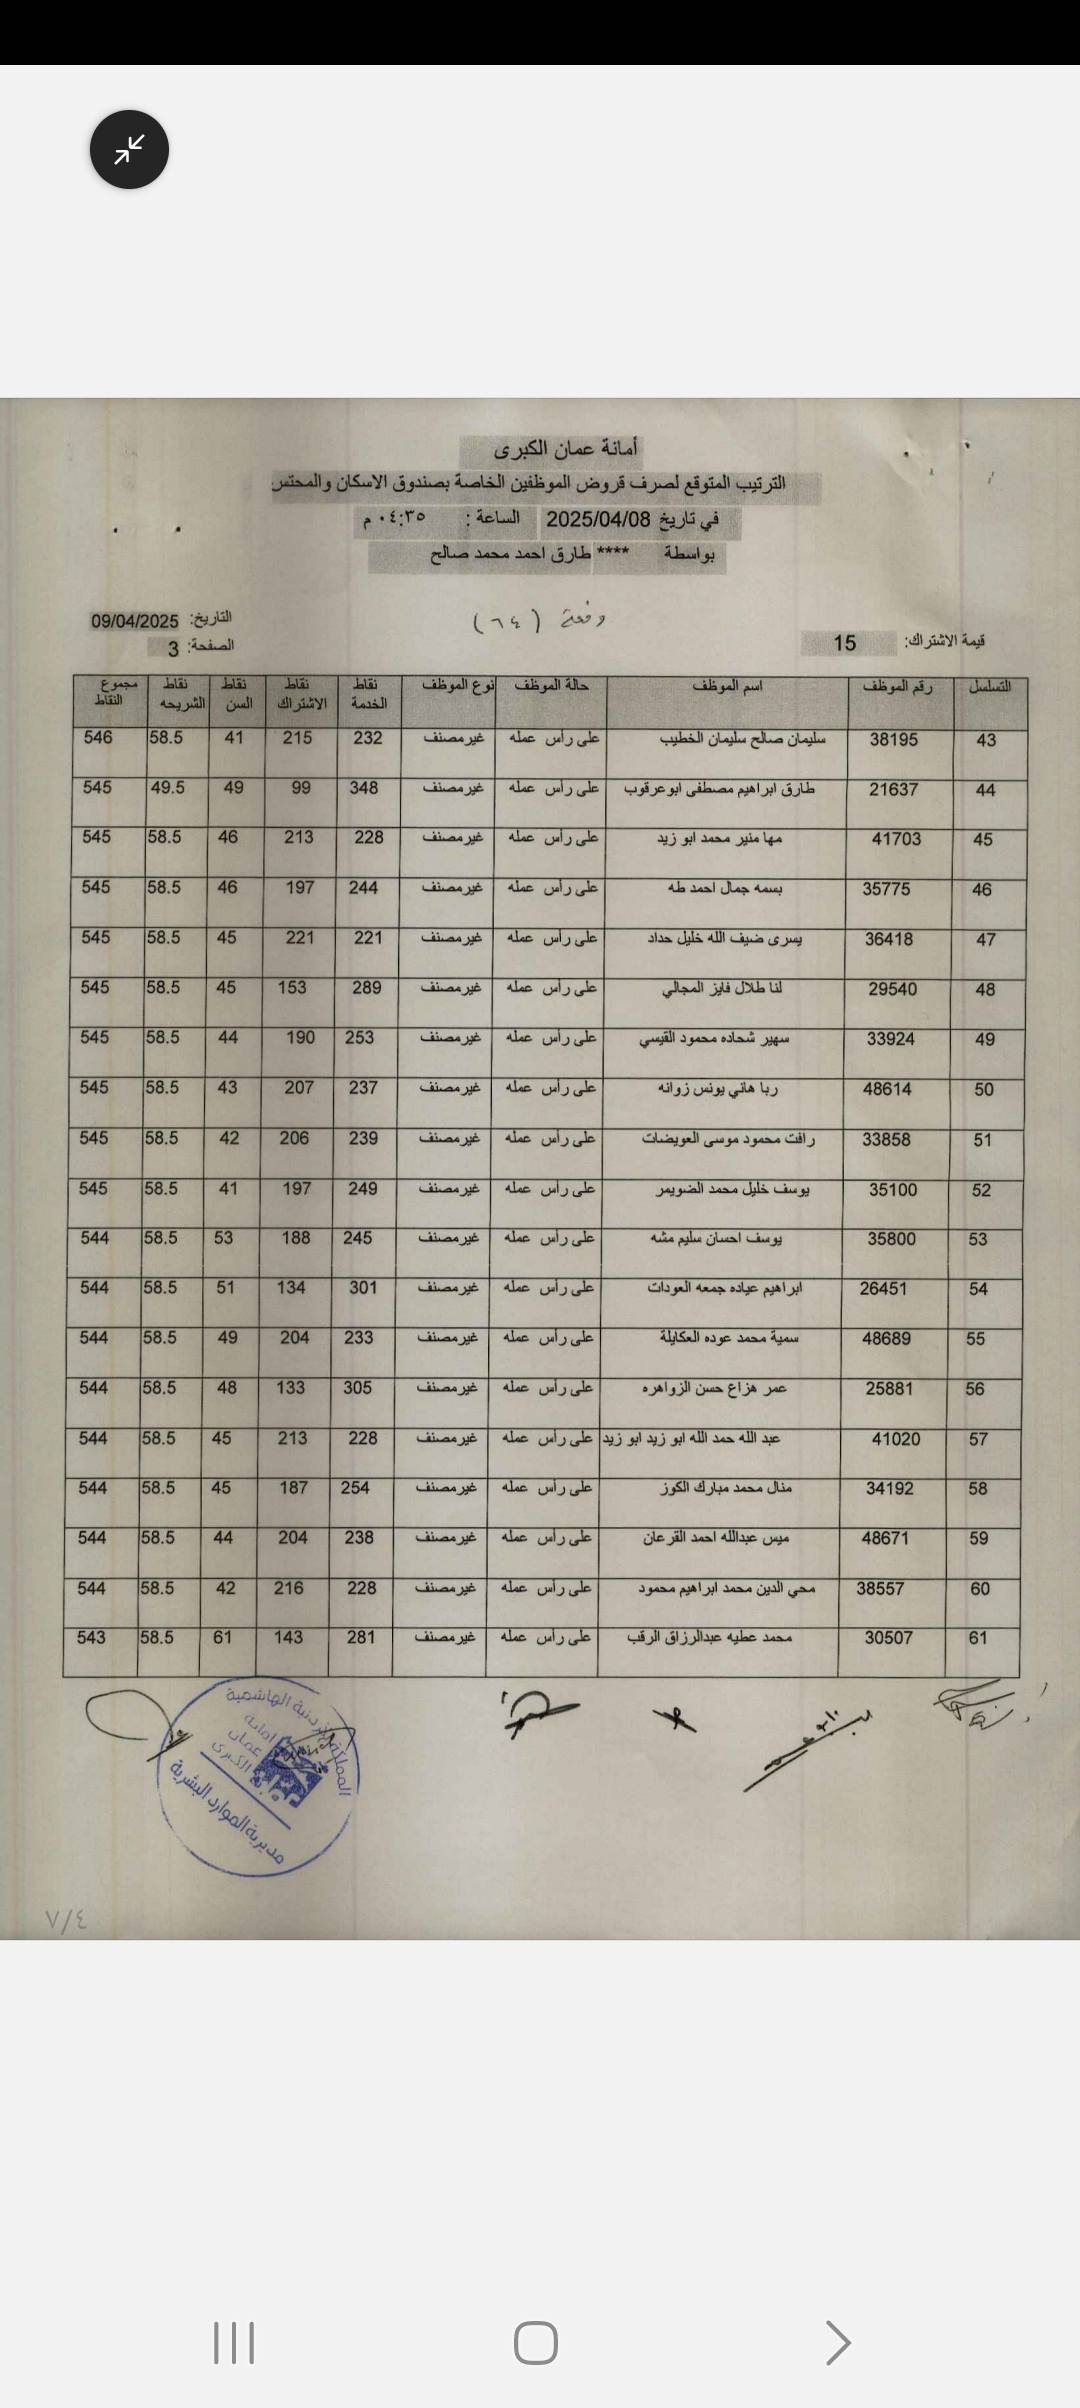 أمانة عمان الكبرى
الترتيب المتوقع لصرف قروض الموظفين الخاصة بصندوق الاسكان والمحتس
في تاريخ 2025/04/08 الساعة : ٠٤:٣٥ م
بواسطة **** طارق احمد محمد صالح
دفعة (٦٤)
التاريخ: 09/04/2025
قيمة الاشتراك: 15
الصفحة: 3
التسلسل رقم الموظف اسم الموظف حالة الموظف نوع الموظف نقاط الخدمة نقاط الاشتراك نقاط السن نقاط الشريحه مجموع النقاط
43 38195 سليمان صالح سليمان الخطيب على رأس عمله غير مصنف 232 215 41 58.5 546
44 21637 طارق ابراهيم مصطفى ابوعرقوب على رأس عمله غير مصنف 348 99 49 49.5 545
45 41703 مها منير محمد ابو زيد على رأس عمله غير مصنف 228 213 46 58.5 545
46 35775 بسمه جمال احمد طه على رأس عمله غير مصنف 244 197 46 58.5 545
47 36418 يسرى ضيف الله خليل حداد على رأس عمله غير مصنف 221 221 45 58.5 545
48 29540 لنا طلال فايز المجالي على رأس عمله غير مصنف 289 153 45 58.5 545
49 33924 سهير شحاده محمود القيسي على رأس عمله غير مصنف 253 190 44 58.5 545
50 48614 ربا هاني يونس زوانه على رأس عمله غير مصنف 237 207 43 58.5 545
51 33858 رافت محمود موسى العويضات على رأس عمله غير مصنف 239 206 42 58.5 545
52 35100 يوسف خليل محمد الضويمر على رأس عمله غير مصنف 249 197 41 58.5 545
53 35800 يوسف احسان سليم مشه على رأس عمله غير مصنف 245 188 53 58.5 544
54 26451 ابراهيم عياده جمعه العودات على رأس عمله غير مصنف 301 134 51 58.5 544
55 48689 سمية محمد عوده العكايلة على رأس عمله غير مصنف 233 204 49 58.5 544
56 25881 عمر هزاع حسن الزواهره على رأس عمله غير مصنف 305 133 48 58.5 544
57 41020 عبد الله حمد الله ابو زيد ابو زيد على رأس عمله غير مصنف 228 213 45 58.5 544
58 34192 منال محمد مبارك الكوز على رأس عمله غير مصنف 254 187 45 58.5 544
59 48671 ميس عبدالله احمد القرعان على رأس عمله غير مصنف 238 204 44 58.5 544
60 38557 محي الدين محمد ابراهيم محمود على رأس عمله غير مصنف 228 216 42 58.5 544
61 30507 محمد عطيه عبدالرزاق الرقب على رأس عمله غير مصنف 281 143 61 58.5 543
المملكة الاردنية الهاشمية
امانة
عمان
الكبرى
مديرية الموارد البشرية
٧/٤